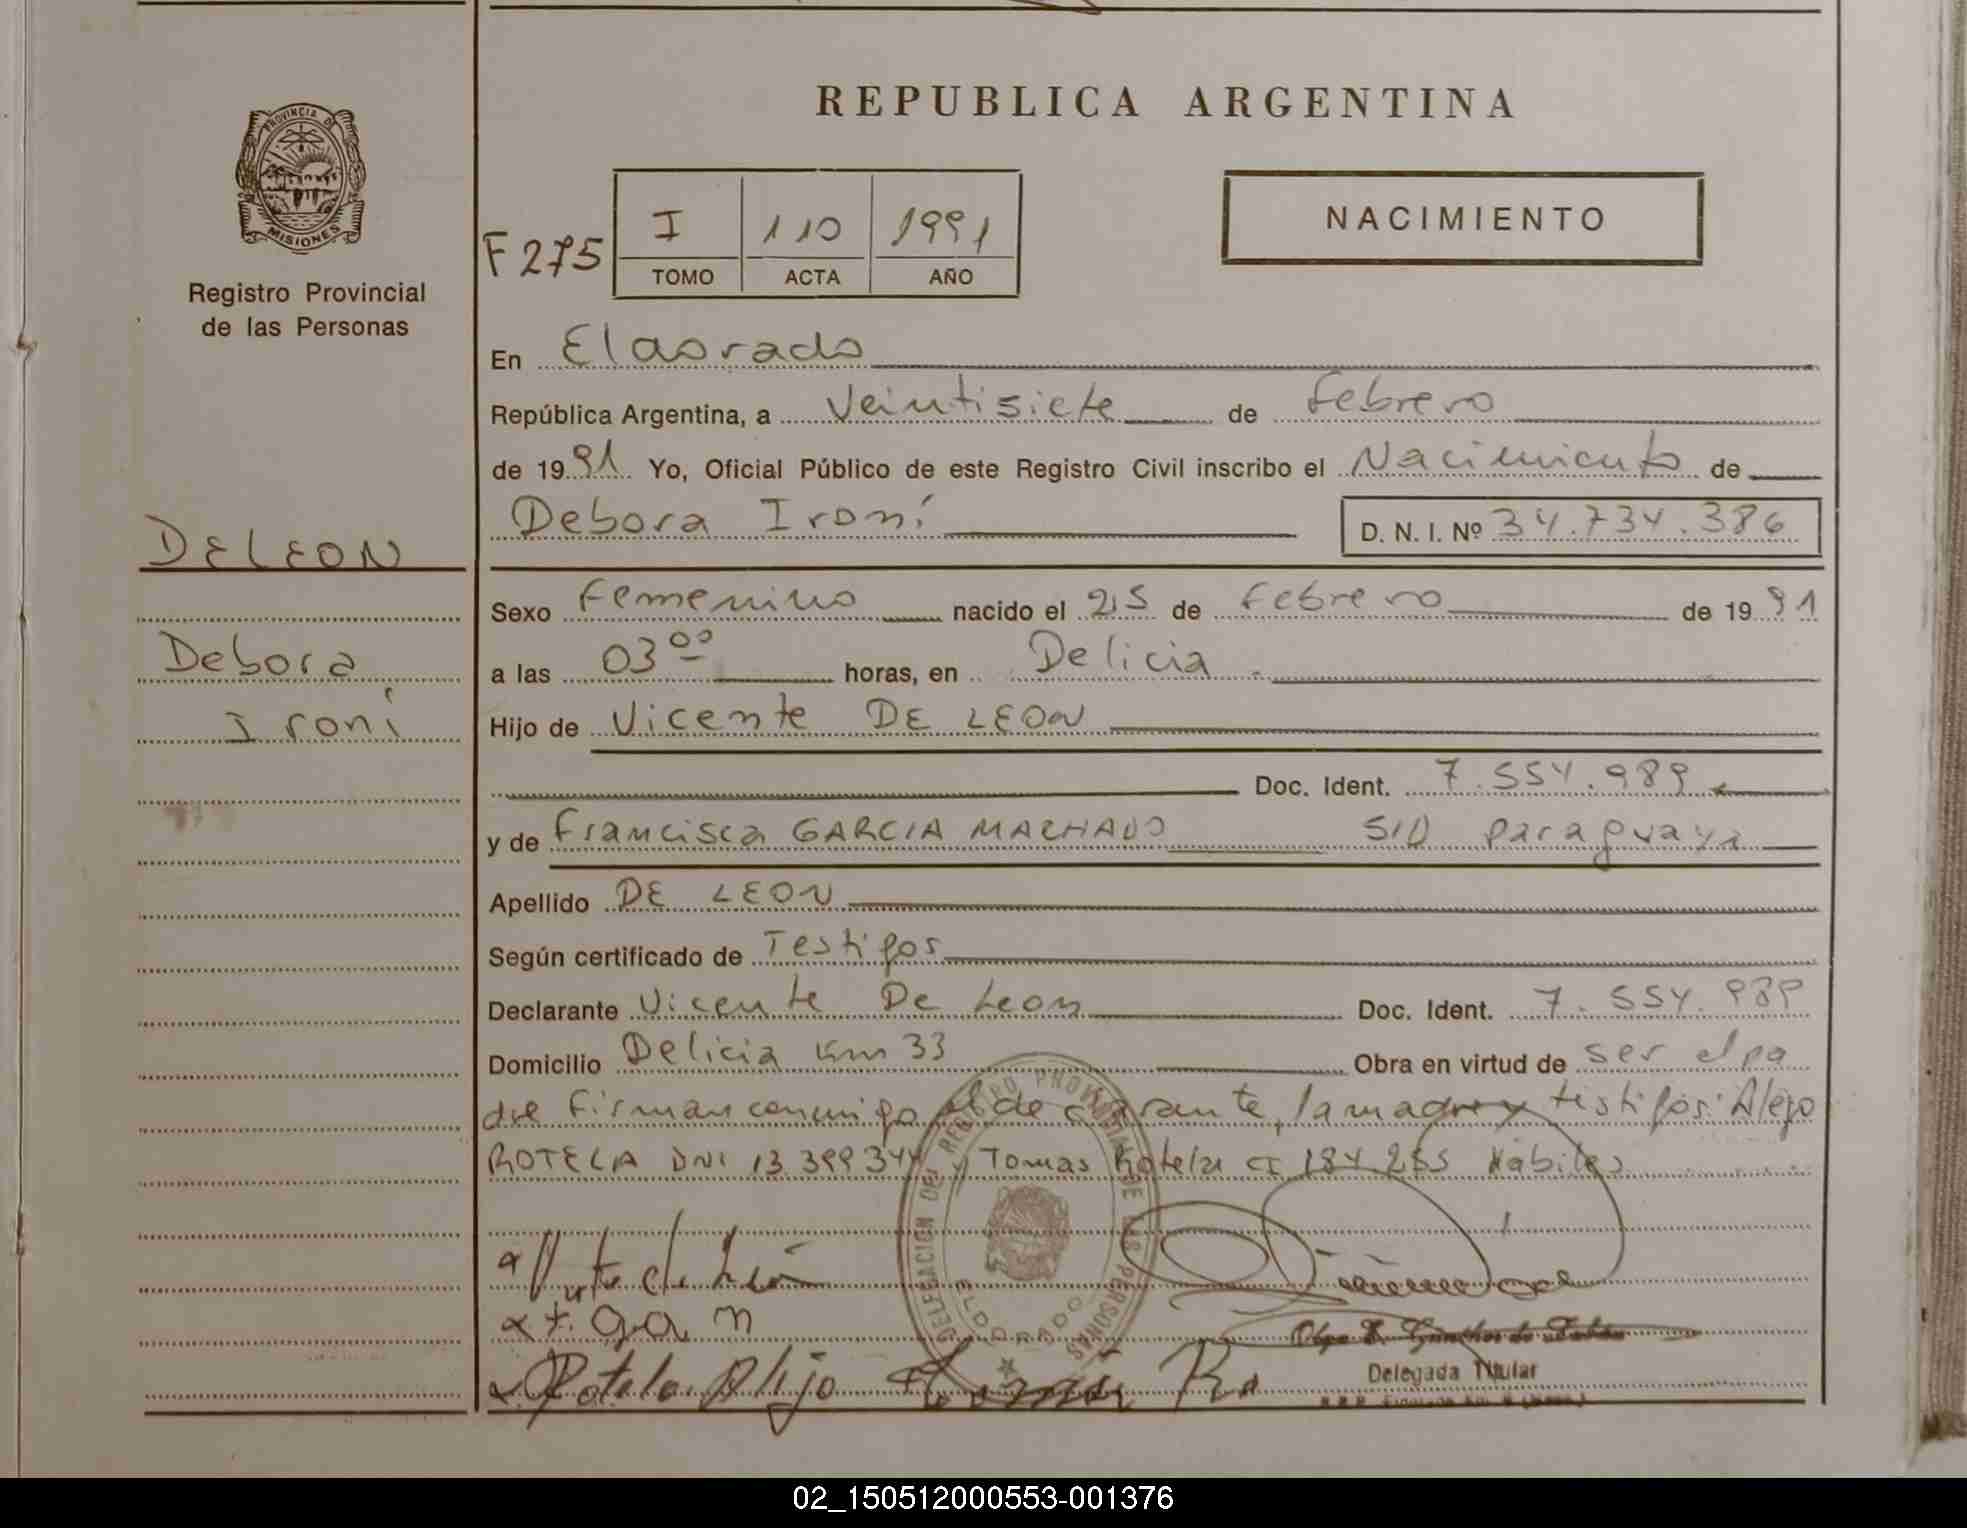 REPUBLICA ARGENTINA
PROVINCIA DE
MISIONES
Registro Provincial
de las Personas
F 275
I 110 1991
TOMO ACTA AÑO
NACIMIENTO
En Eldorado
República Argentina, a Veintisiete de Febrero
de 1991 Yo, Oficial Público de este Registro Civil inscribo el Nacimiento de
DE LEON
Debora Ironí D. N. I. Nº 34.734.386
Sexo Femenino nacido el 25 de Febrero de 1991
Debora
a las 03⁰⁰ horas, en Delicia
Ironí
Hijo de Vicente DE LEON
Doc. Ident. 7.554.989
y de Francisca GARCIA MACHADO S/D paraguaya
Apellido DE LEON
Según certificado de Testigos
Declarante Vicente De Leon Doc. Ident. 7.554.989
Domicilio Delicia Km 33 Obra en virtud de ser el pa
dre Firman conmigo el declarante, la madre y testigos: Alejo
ROTELA DNI 13.399.344 y Tomas Rotela CI 184 255 Habiles
DELEGACION DEL REGISTRO PROVINCIAL DE LAS PERSONAS
ELDORADO
Rotela Alijo
Delegada Titular
02_150512000553-001376